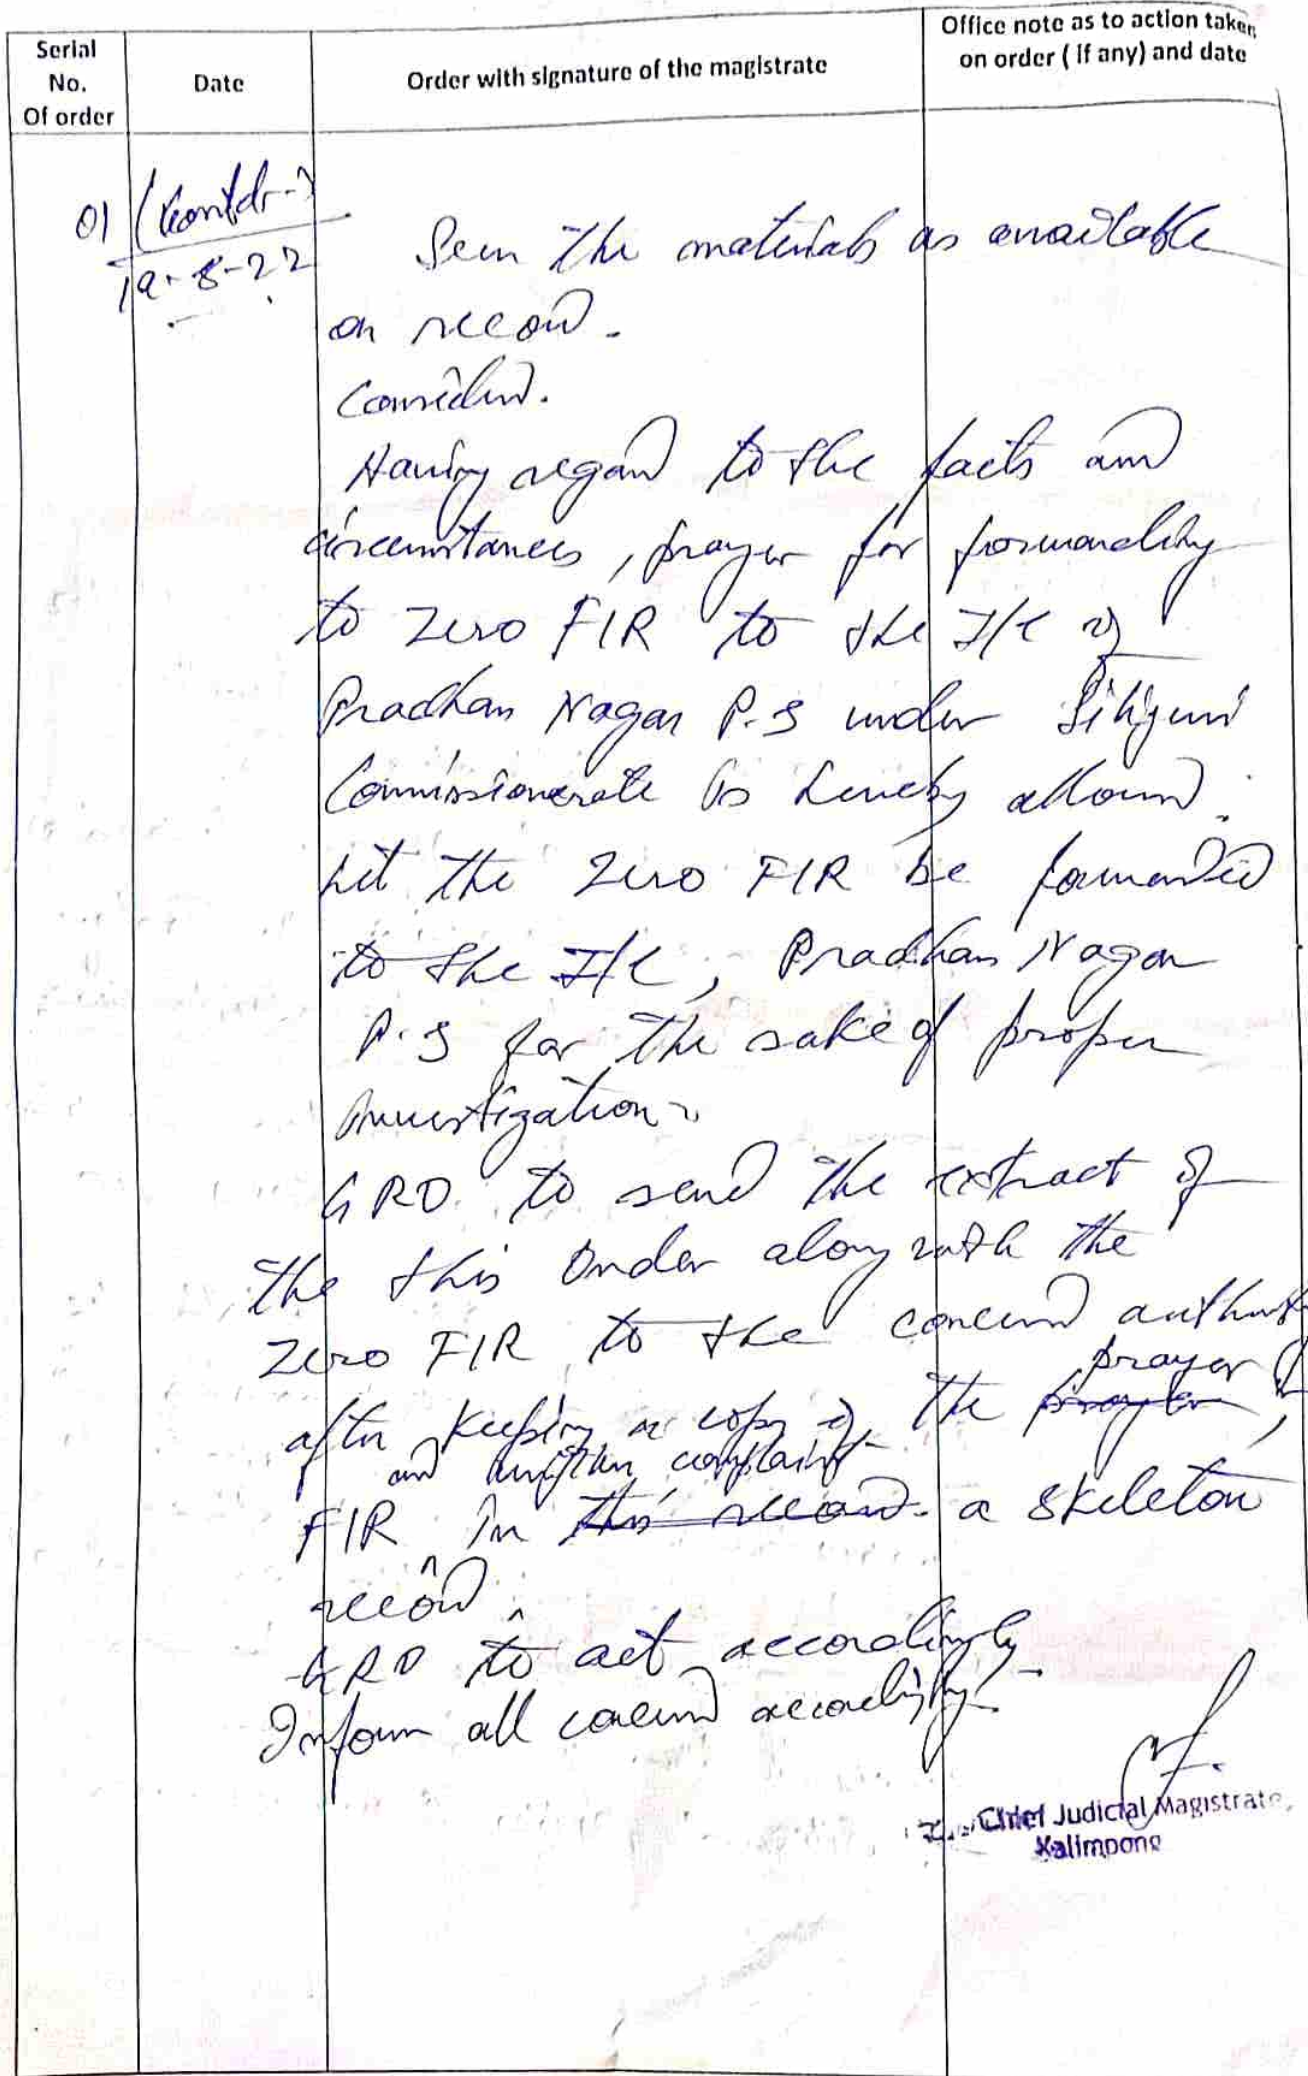 Serial No. Of order
Date
Order with signature of the magistrate
Office note as to action taken on order ( if any) and date
01 (Contd--)
19-8-22
Seen the materials as available
on record.
Considered.
Having regard to the facts and
circumstances, prayer for forwarding
to Zero FIR to the I/C of
Pradhan Nagar P.S under Siliguri
Commissionerate is hereby allowed.
Let the Zero FIR be forwarded
to the I/C, Pradhan Nagar
P.S for the sake of proper
investigation.
GRO to send the extract of
the this Order along with the
Zero FIR to the concerned authority
prayer
after keeping a copy of the prayer,
and written complaint
FIR in this record a skeleton
record.
GRO to act accordingly
Inform all concerned accordingly
Chief Judicial Magistrate,
Kalimpong